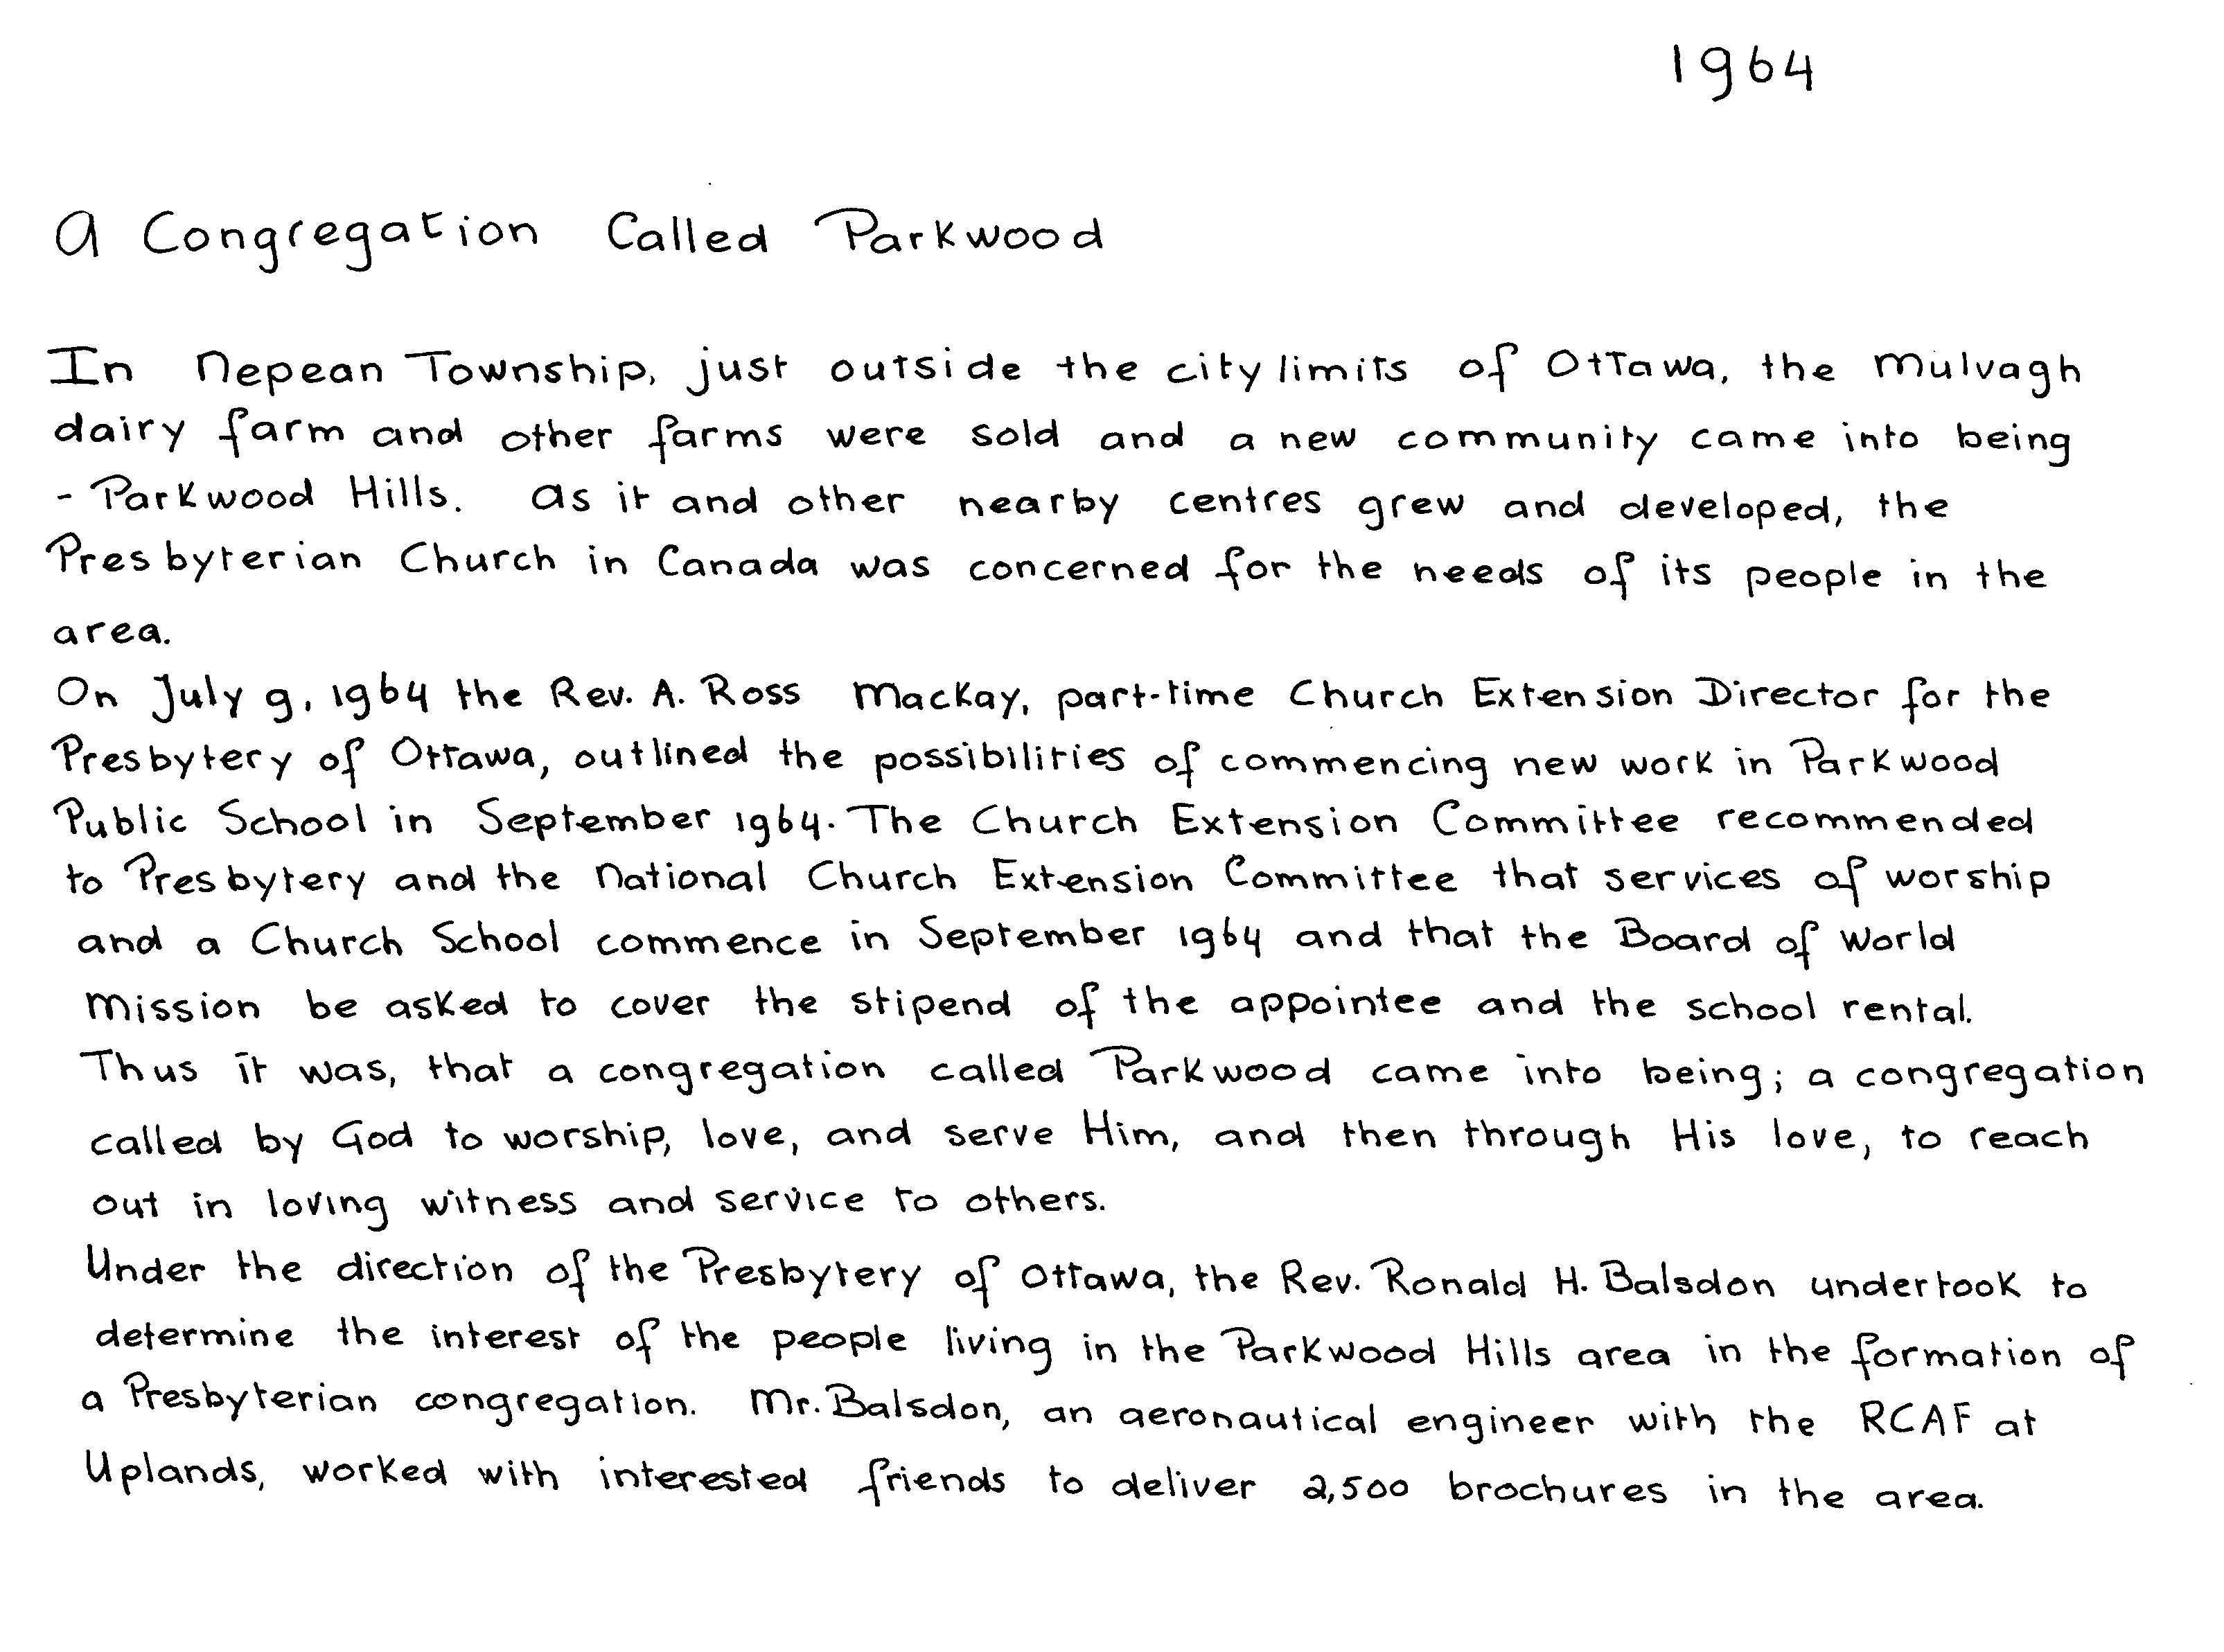 1964
A Congregation Called Parkwood
In Nepean Township, just outside the city limits of Ottawa, the Mulvagh
dairy farm and other farms were sold and a new community came into being
- Parkwood Hills. As it and other nearby centres grew and developed, the
Presbyterian Church in Canada was concerned for the needs of its people in the
area.
On July 9, 1964 the Rev. A. Ross MacKay, part-time Church Extension Director for the
Presbytery of Ottawa, outlined the possibilities of commencing new work in Parkwood
Public School in September 1964. The Church Extension Committee recommended
to Presbytery and the National Church Extension Committee that services of worship
and a Church School commence in September 1964 and that the Board of World
Mission be asked to cover the stipend of the appointee and the school rental.
Thus it was, that a congregation called Parkwood came into being; a congregation
called by God to worship, love, and serve Him, and then through His love, to reach
out in loving witness and service to others.
Under the direction of the Presbytery of Ottawa, the Rev. Ronald H. Balsdon undertook to
determine the interest of the people living in the Parkwood Hills area in the formation of
a Presbyterian congregation. Mr. Balsdon, an aeronautical engineer with the RCAF at
Uplands, worked with interested friends to deliver 2,500 brochures in the area.